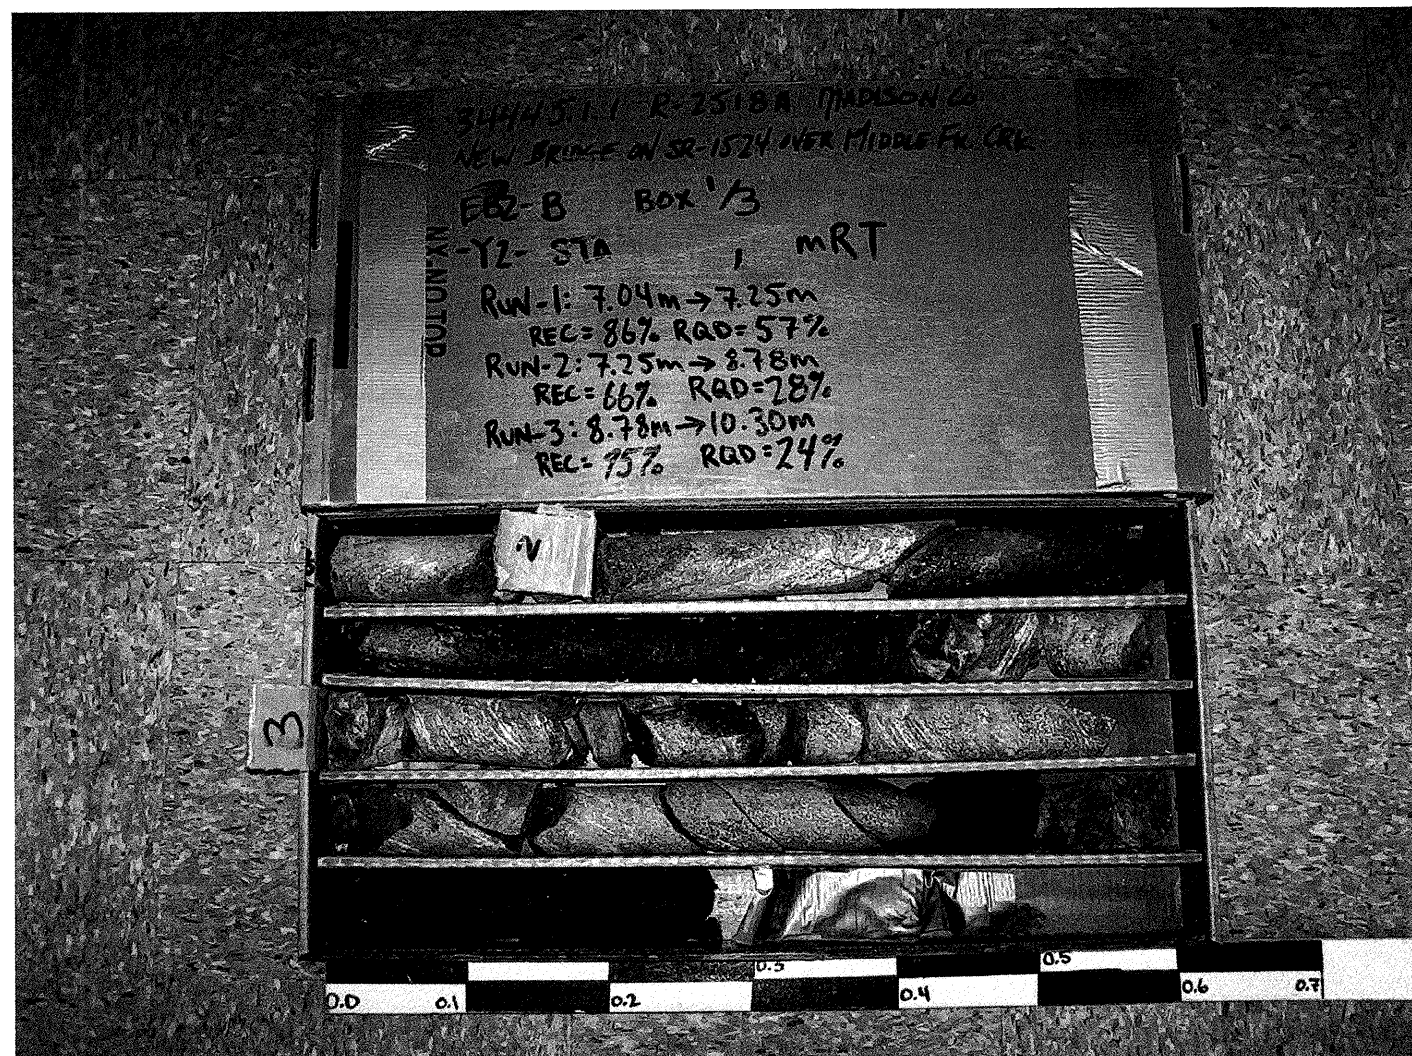 34445.1.1 R-2518A MADISON CO.
NEW BRIDGE ON SR-1524 OVER MIDDLE FK. CRK.
EB2-B BOX 1/3
-Y2- STA , mRT
RUN-1: 7.04m→7.25m
REC=86% RQD=57%
RUN-2: 7.25m→8.78m
REC=66% RQD=28%
RUN-3: 8.78m→10.30m
REC=95% RQD=24%
2
3
0.3 0.5
0.0 0.1 0.2 0.4 0.6 0.7